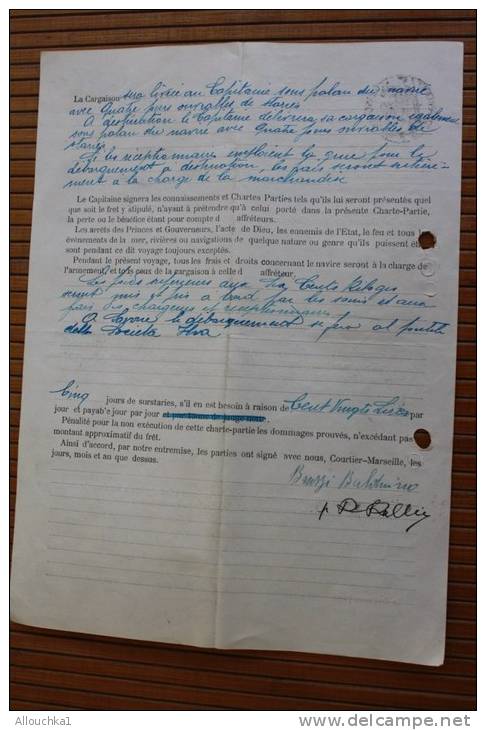 La Cargaison sera livrée au Capitaine sous palan du navire
avec quatre jours ouvrables de staries
A destination le Capitaine délivrera sa cargaison également
sous palan du navire avec quatre jours ouvrables de
staries
Si les réceptionnaires emploient la grue pour le
débarquement à destination, les frais seront entière-
ment à la charge de la marchandise
Le Capitaine signera les connaissements et Chartes Parties tels qu'ils lui seront présentés quel
que soit le fret y stipulé, n'ayant à prétendre qu'à celui porté dans la présente Charte-Partie,
la perte ou le bénéfice étant pour compte d affréteurs.
Les arrêts des Princes et Gouverneurs, l'acte de Dieu, les ennemis de l'Etat, le feu et tous les
événements de la mer, rivières ou navigations de quelque nature ou genre qu'ils puissent être
sont pendant ce dit voyage toujours exceptés.
Pendant le présent voyage, tous les frais et droits concernant le navire seront à la charge de
l'armement, et tous ceux de la cargaison à celle d affréteur.
Les poids
seront mis et pris à bord par les soins et aux
frais des chargeurs et réceptionnaires
A Savone le débarquement se fera al pontile
della Societa Ilva
Cinq jours de surstaries, s'il en est besoin à raison de Cent Vingts Lires par
jour et payable jour par jour
Pénalité pour la non exécution de cette charte-partie les dommages prouvés, n'excédant pas le
montant approximatif du frêt.
Ainsi d'accord, par notre entremise, les parties ont signé avec nous, Courtier-Marseille, les
jours, mois et au que dessus.
Allouchka1
© delcampe.net